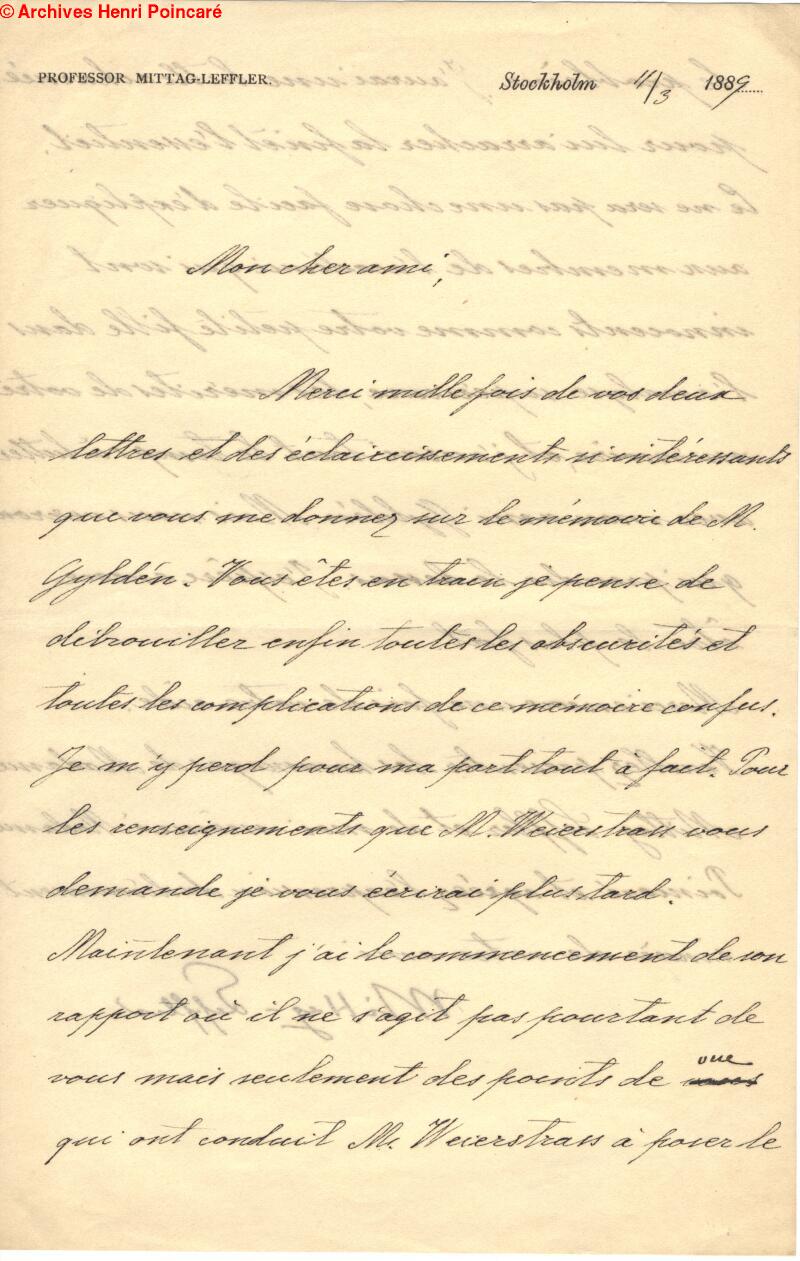 © Archives Henri Poincaré
PROFESSOR MITTAG-LEFFLER. Stockholm 4/3 1889
Mon cher ami,
Merci mille fois de vos deux
lettres et des éclaircissements si intéressants
que vous me donnez sur le mémoire de M.
Gyldén. Vous êtes en train je pense de
débrouiller enfin toutes les obscurités et
toutes les complications de ce mémoire confus.
Je m'y perd pour ma part tout à fait. Pour
les renseignements que M. Weierstrass vous
demande je vous écrirai plus tard.
Maintenant j'ai le commencement de son
rapport où il ne s'agit pas pourtant de
vous mais seulement des points de vue
qui ont conduit M. Weierstrass à poser le